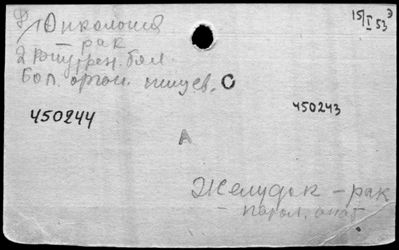 1) Онкология
15/I 53 э
— рак
2 Внутрен. бол.
бол. орган. пищев. С
450243
450244
А
Желудок — рак
— патол. анат